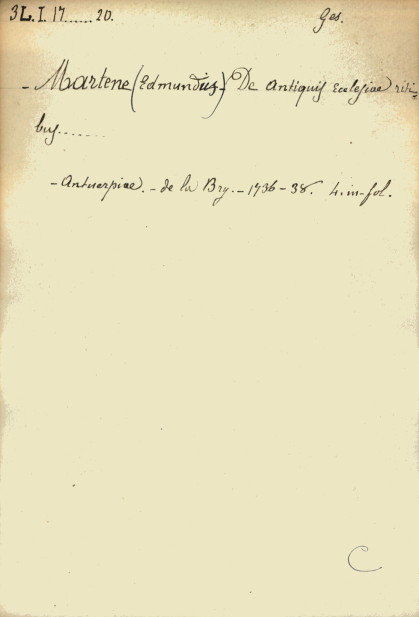 3L.I.17......20. Ges.
- Martene (Edmundus) De Antiquis Ecclesiae riti-
bus........
- Antuerpiae. - de la Bry. - 1736 - 38. 4. in-fol.
C